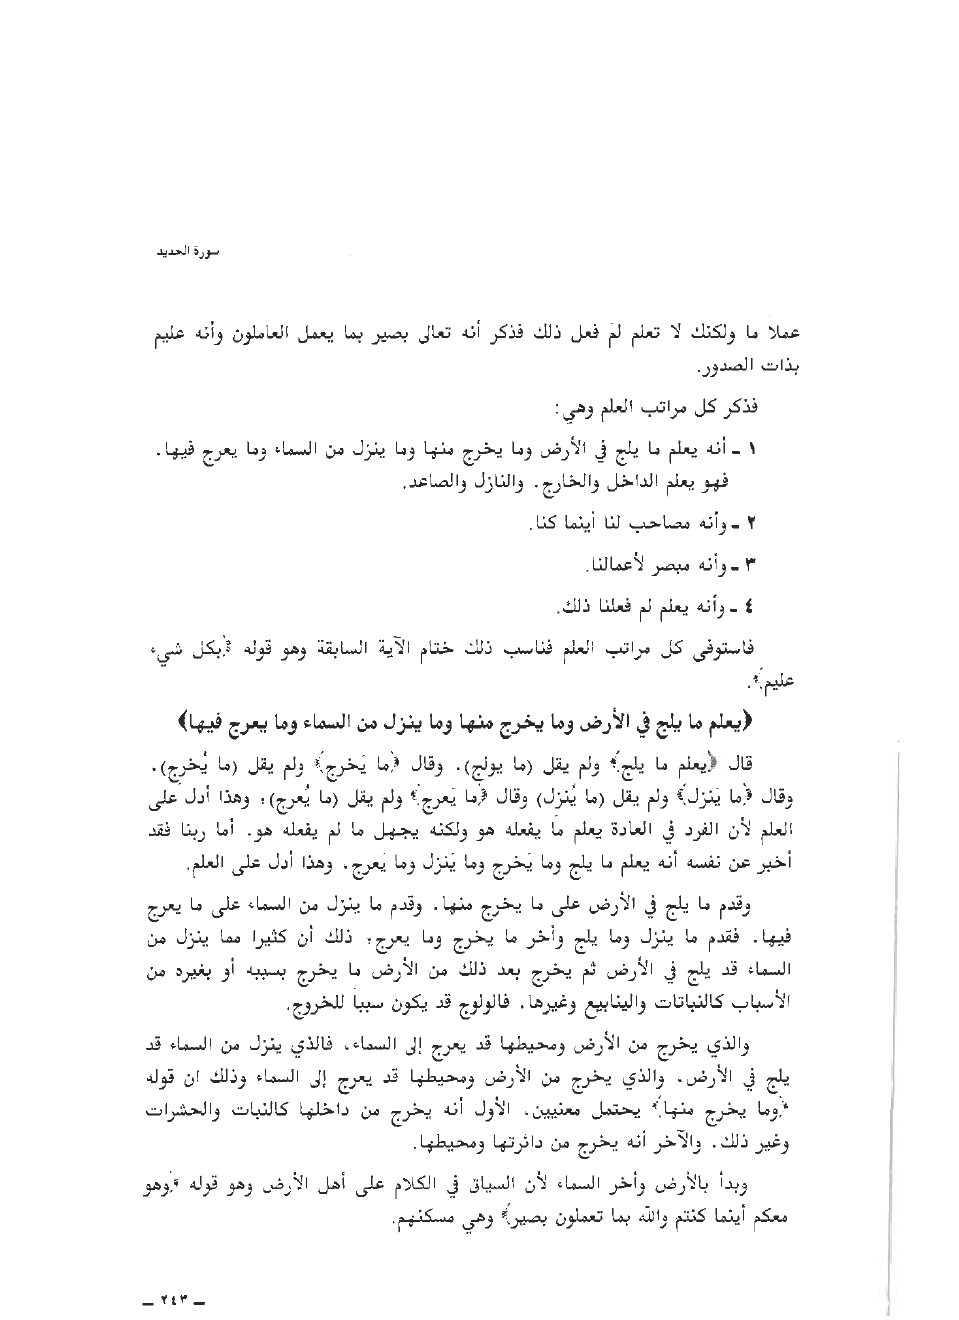 سورة الحديد
عملا ما ولكنك لا تعلم لمَ فعل ذلك فذكر أنه تعالى بصير بما يعمل العاملون وأنه عليم
بذات الصدور.
فذكر كل مراتب العلم وهي:
١ ـ أنه يعلم ما يلج في الأرض وما يخرج منها وما ينزل من السماء وما يعرج فيها.
فهو يعلم الداخل والخارج. والنازل والصاعد.
٢ ـ وأنه مصاحب لنا أينما كنا.
٣ ـ وأنه مبصر لأعمالنا.
٤ ـ وأنه يعلم لم فعلنا ذلك.
فاستوفى كل مراتب العلم فناسب ذلك ختام الآية السابقة وهو قوله ﴿بكل شيء
عليم﴾.
﴿يعلم ما يلج في الأرض وما يخرج منها وما ينزل من السماء وما يعرج فيها﴾
قال ﴿يعلم ما يلج﴾ ولم يقل (ما يولج). وقال ﴿ما يَخرج﴾ ولم يقل (ما يُخرج).
وقال ﴿ما يَنزل﴾ ولم يقل (ما يُنزل) وقال ﴿ما يَعرج﴾ ولم يقل (ما يُعرج)؛ وهذا أدل على
العلم لأن الفرد في العادة يعلم ما يفعله هو ولكنه يجهل ما لم يفعله هو. أما ربنا فقد
أخبر عن نفسه أنه يعلم ما يلج وما يَخرج وما يَنزل وما يَعرج. وهذا أدل على العلم.
وقدم ما يلج في الأرض على ما يخرج منها. وقدم ما ينزل من السماء على ما يعرج
فيها. فقدم ما ينزل وما يلج وأخر ما يخرج وما يعرج؛ ذلك أن كثيرا مما ينزل من
السماء قد يلج في الأرض ثم يخرج بعد ذلك من الأرض ما يخرج بسببه أو بغيره من
الأسباب كالنباتات والينابيع وغيرها. فالولوج قد يكون سبباً للخروج.
والذي يخرج من الأرض ومحيطها قد يعرج إلى السماء، فالذي ينزل من السماء قد
يلج في الأرض. والذي يخرج من الأرض ومحيطها قد يعرج إلى السماء وذلك ان قوله
﴿وما يخرج منها﴾ يحتمل معنيين. الأول أنه يخرج من داخلها كالنبات والحشرات
وغير ذلك. والآخر أنه يخرج من دائرتها ومحيطها.
وبدأ بالأرض وأخر السماء لأن السياق في الكلام على أهل الأرض وهو قوله ﴿وهو
معكم أينما كنتم والله بما تعملون بصير﴾ وهي مسكنهم.
ـ ٢٤٣ ـ